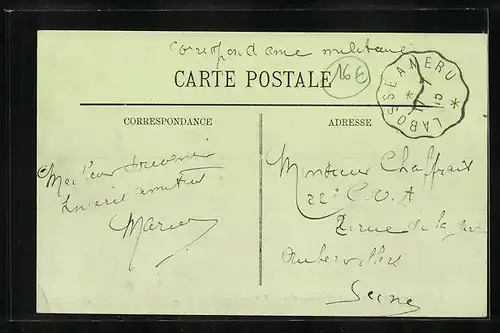 Correspondance militaire
CARTE POSTALE
16E
LABOSSE A MERU
CORRESPONDANCE
ADRESSE
Meilleur souvenir
Sincere amitié
Marcel
Monsieur Chaffrait
22e C.O.A
2 rue de la
Aubervilliers
Seine